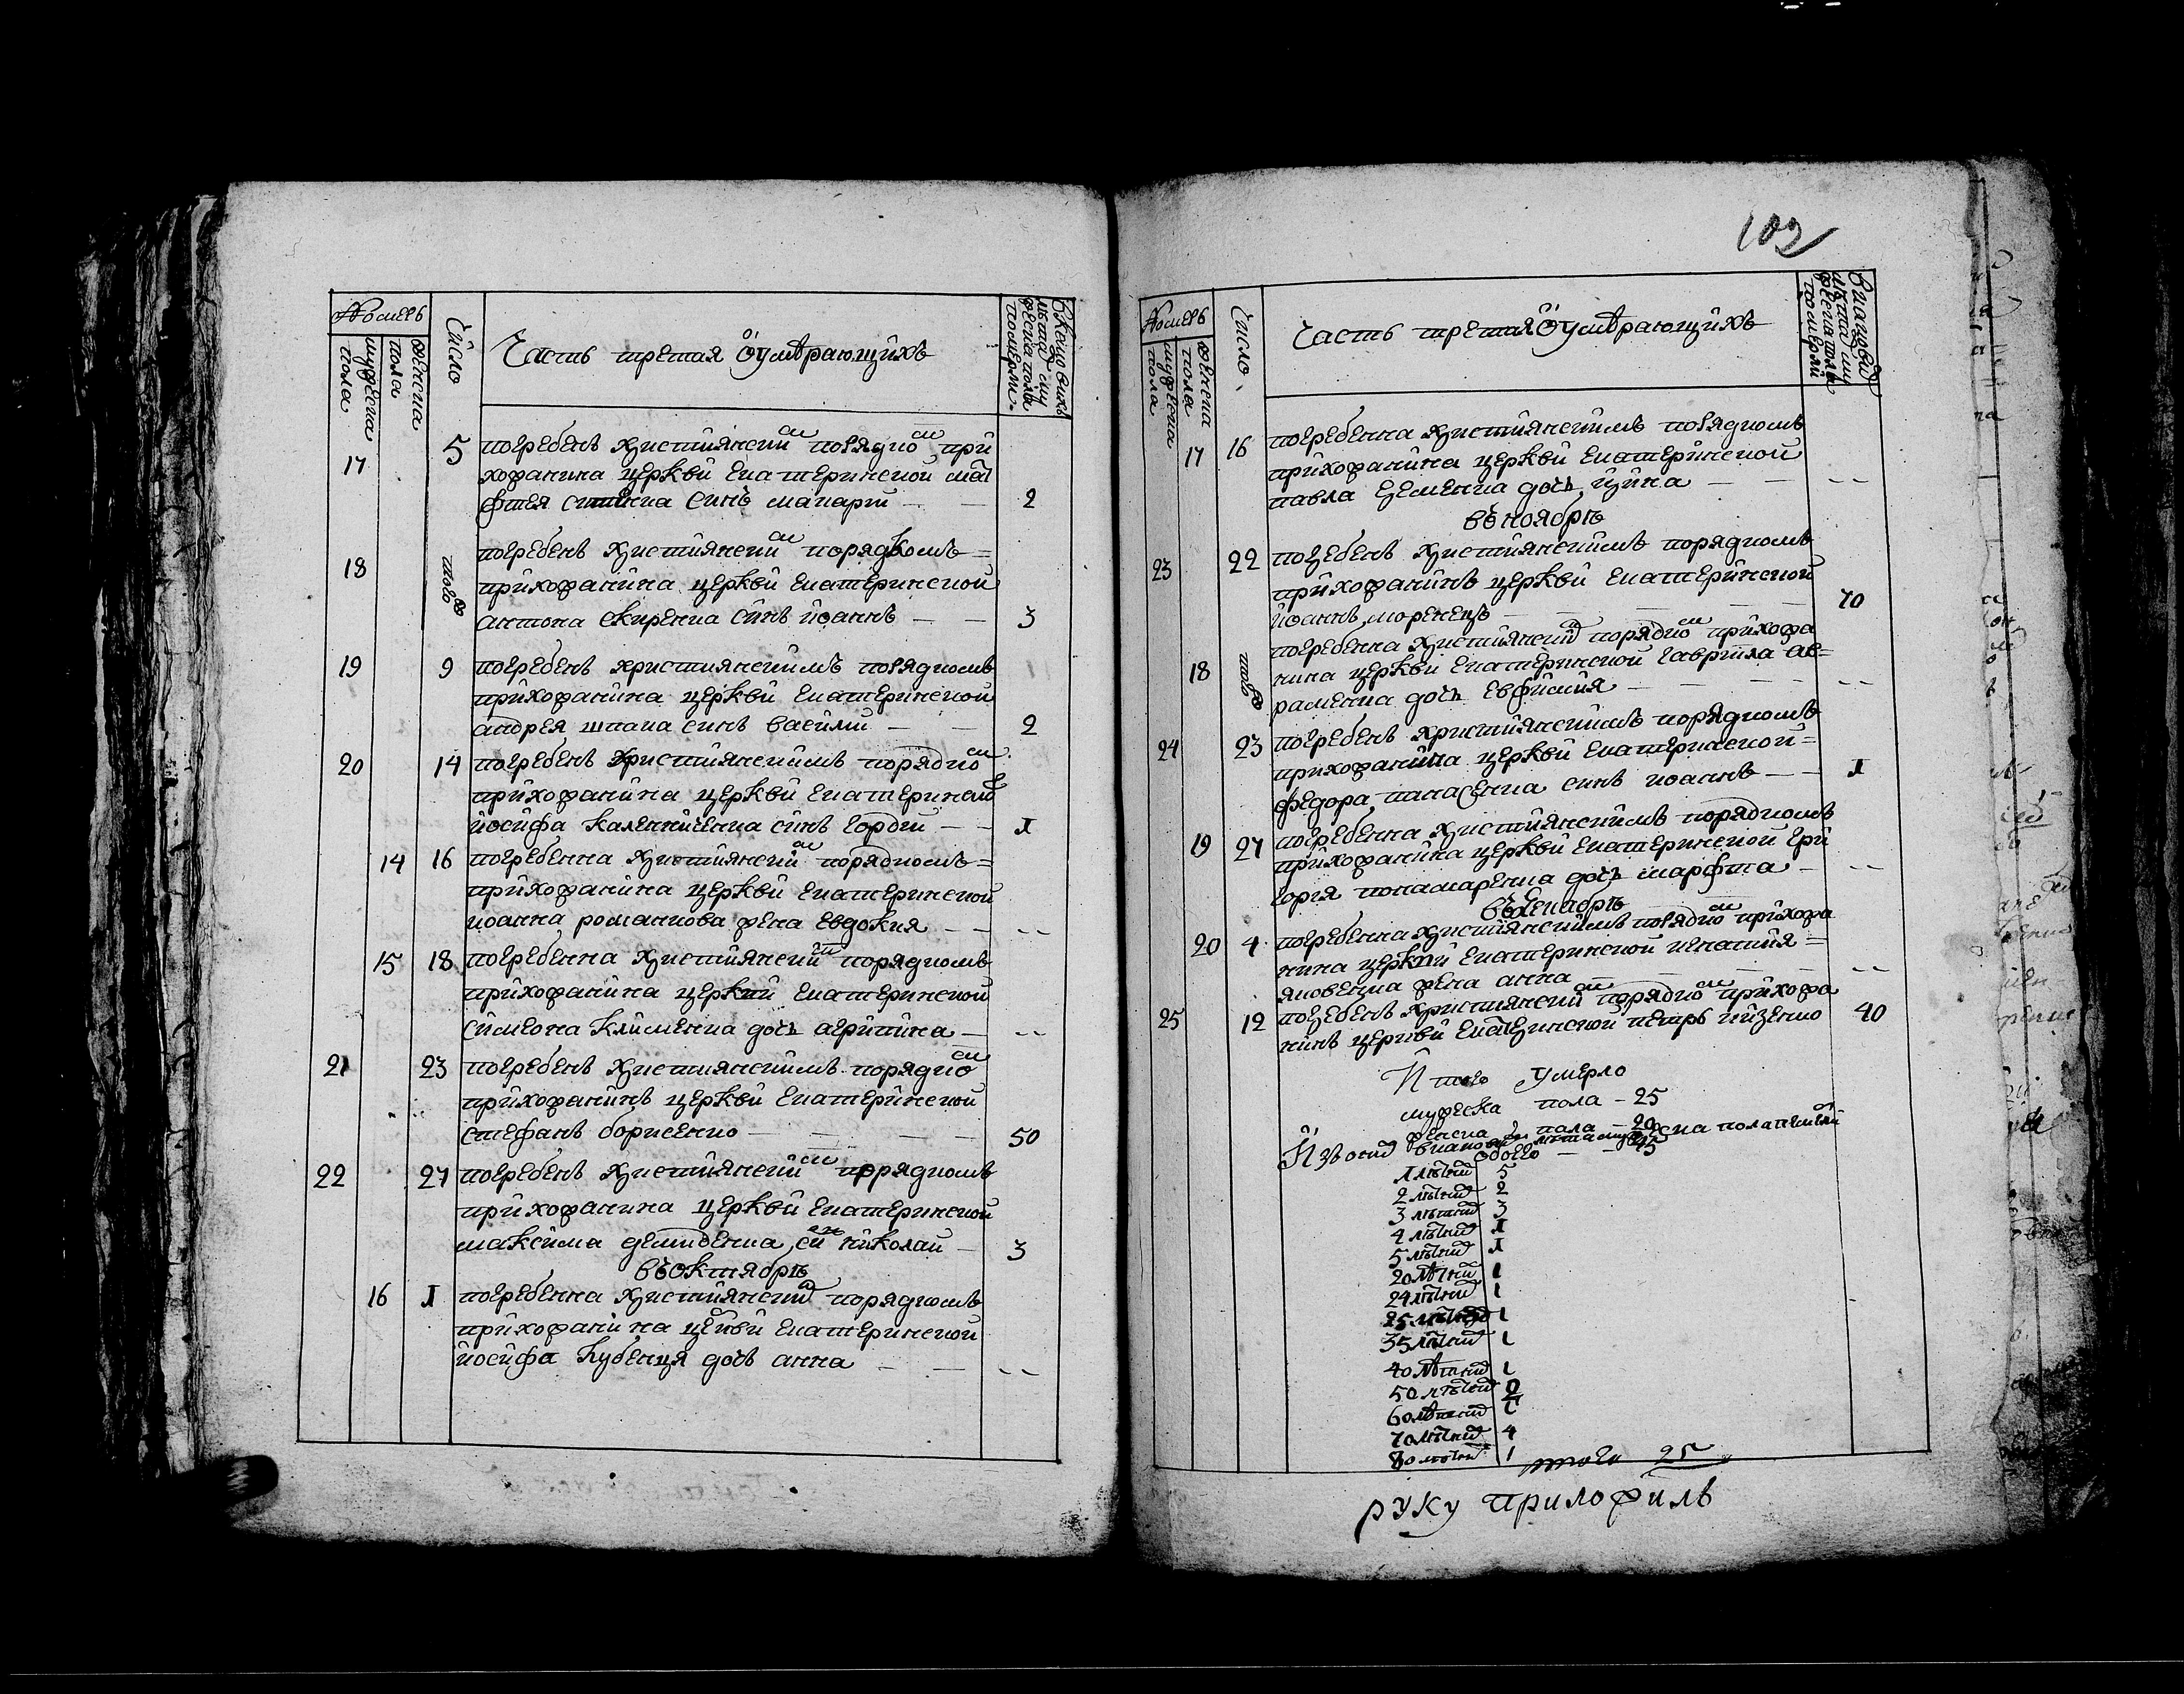 Номеръ
мужеска пола
женска пола
Число
Часть третая о умѣрающихъ
Вкаковихъ лѣта му жеска пола померли
17 5 погребенъ християнским порядком при
хожанина церкви Екатеринской мат
фтея сина синъ макарии 2
18 того ж погребенъ християнским порядкомъ
прихожанина церкви Екатеринской
антона скиренка синъ иоаннъ 3
19 9 погребенъ християнскимъ порядкомъ
прихожанина церкви Екатеринской
андрея шпака синъ василии 2
20 14 погребенъ християнскимъ порядком
прихожанина церкви Екатеринской
иосифа каленниченка синъ гордии 1
14 16 погребенна християнским порядкомъ
прихожанина церкви Екатеринской
иоанна романнова жена Евдокия
15 18 погребенна християнским порядкомъ
прихожанина церкви Екатеринской
симеона клименка дочь агрипина
21 23 погребенъ християнскимъ порядком
прихожанинъ церкви Екатеринской
стефанъ борисенко 50
22 27 погребенъ християнским порядкомъ
прихожанина церкви Екатеринской
максима демиденка син николаи 3
въ октябрѣ
16 1 погребенна християнским порядкомъ
прихожанина церкви Екатеринской
иосифа кубенця дочь анна
102
Номеръ
мужеска пола
женска пола
Число
Часть третая о умѣрающихъ
Вкакових лѣта му жеска пола померли
17 16 погребенна християнскимъ порядкомъ
прихожанина церкви Екатеринской
павла дочь
въ ноябрѣ
23 22 погребенъ християнскимъ порядкомъ
прихожанинъ церкви Екатеринской
иоаннъ моренецъ 70
18 того ж погребенна християнским порядком прихожа
нина церкви Екатеринской гаврила ав
раменка дочь Евфимия
24 23 погребенъ християнскимъ порядкомъ
прихожанина церкви Екатеринской
федора панасенка синъ иоаннъ 1
19 27 погребенна християнскимъ порядкомъ
прихожанина церкви Екатеринской гри
гория понамаренка дочь марфта
въ декабрѣ
20 4 погребенна християнскимъ порядком прихожа
нина церкви Екатеринской игнатия
яковенка жена анна
25 12 погребенъ християнским порядком прихожа
нинъ церкви Екатеринской петръ 40
Итого умерло
мужеска пола - 25
женска пола - 20
обоего - 45
Изъ оних вкакових лѣта мужеска пола
1 лѣтних 5
2 лѣтних 2
3 лѣтних 3
4 лѣтних 1
5 лѣтних 1
20 лѣтних 1
24 лѣтних 1
25 лѣтних 1
35 лѣтних 1
40 лѣтних 1
50 лѣтних 2
60 лѣтних 1
70 лѣтних 4
80 лѣтних 1
итого 25
руку приложилъ